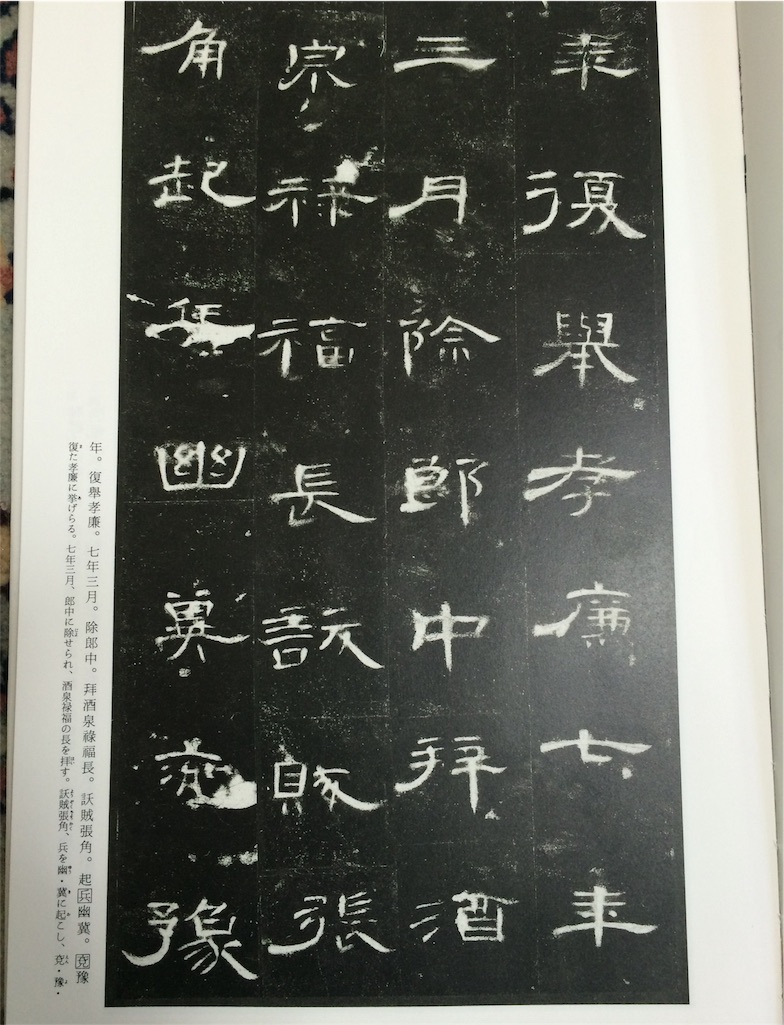 年復舉孝廉七年
三月除郎中拜酒
泉祿福長訞賊張
角起兵幽冀兗豫
年。復舉孝廉。七年三月。除郎中。拜酒泉祿福長。訞賊張角。起兵幽冀。兗豫
復た孝廉に挙げらる。七年三月、郎中に除せられ、酒泉禄福の長を拝す。訞賊張角、兵を幽・冀に起こし、兗・豫・